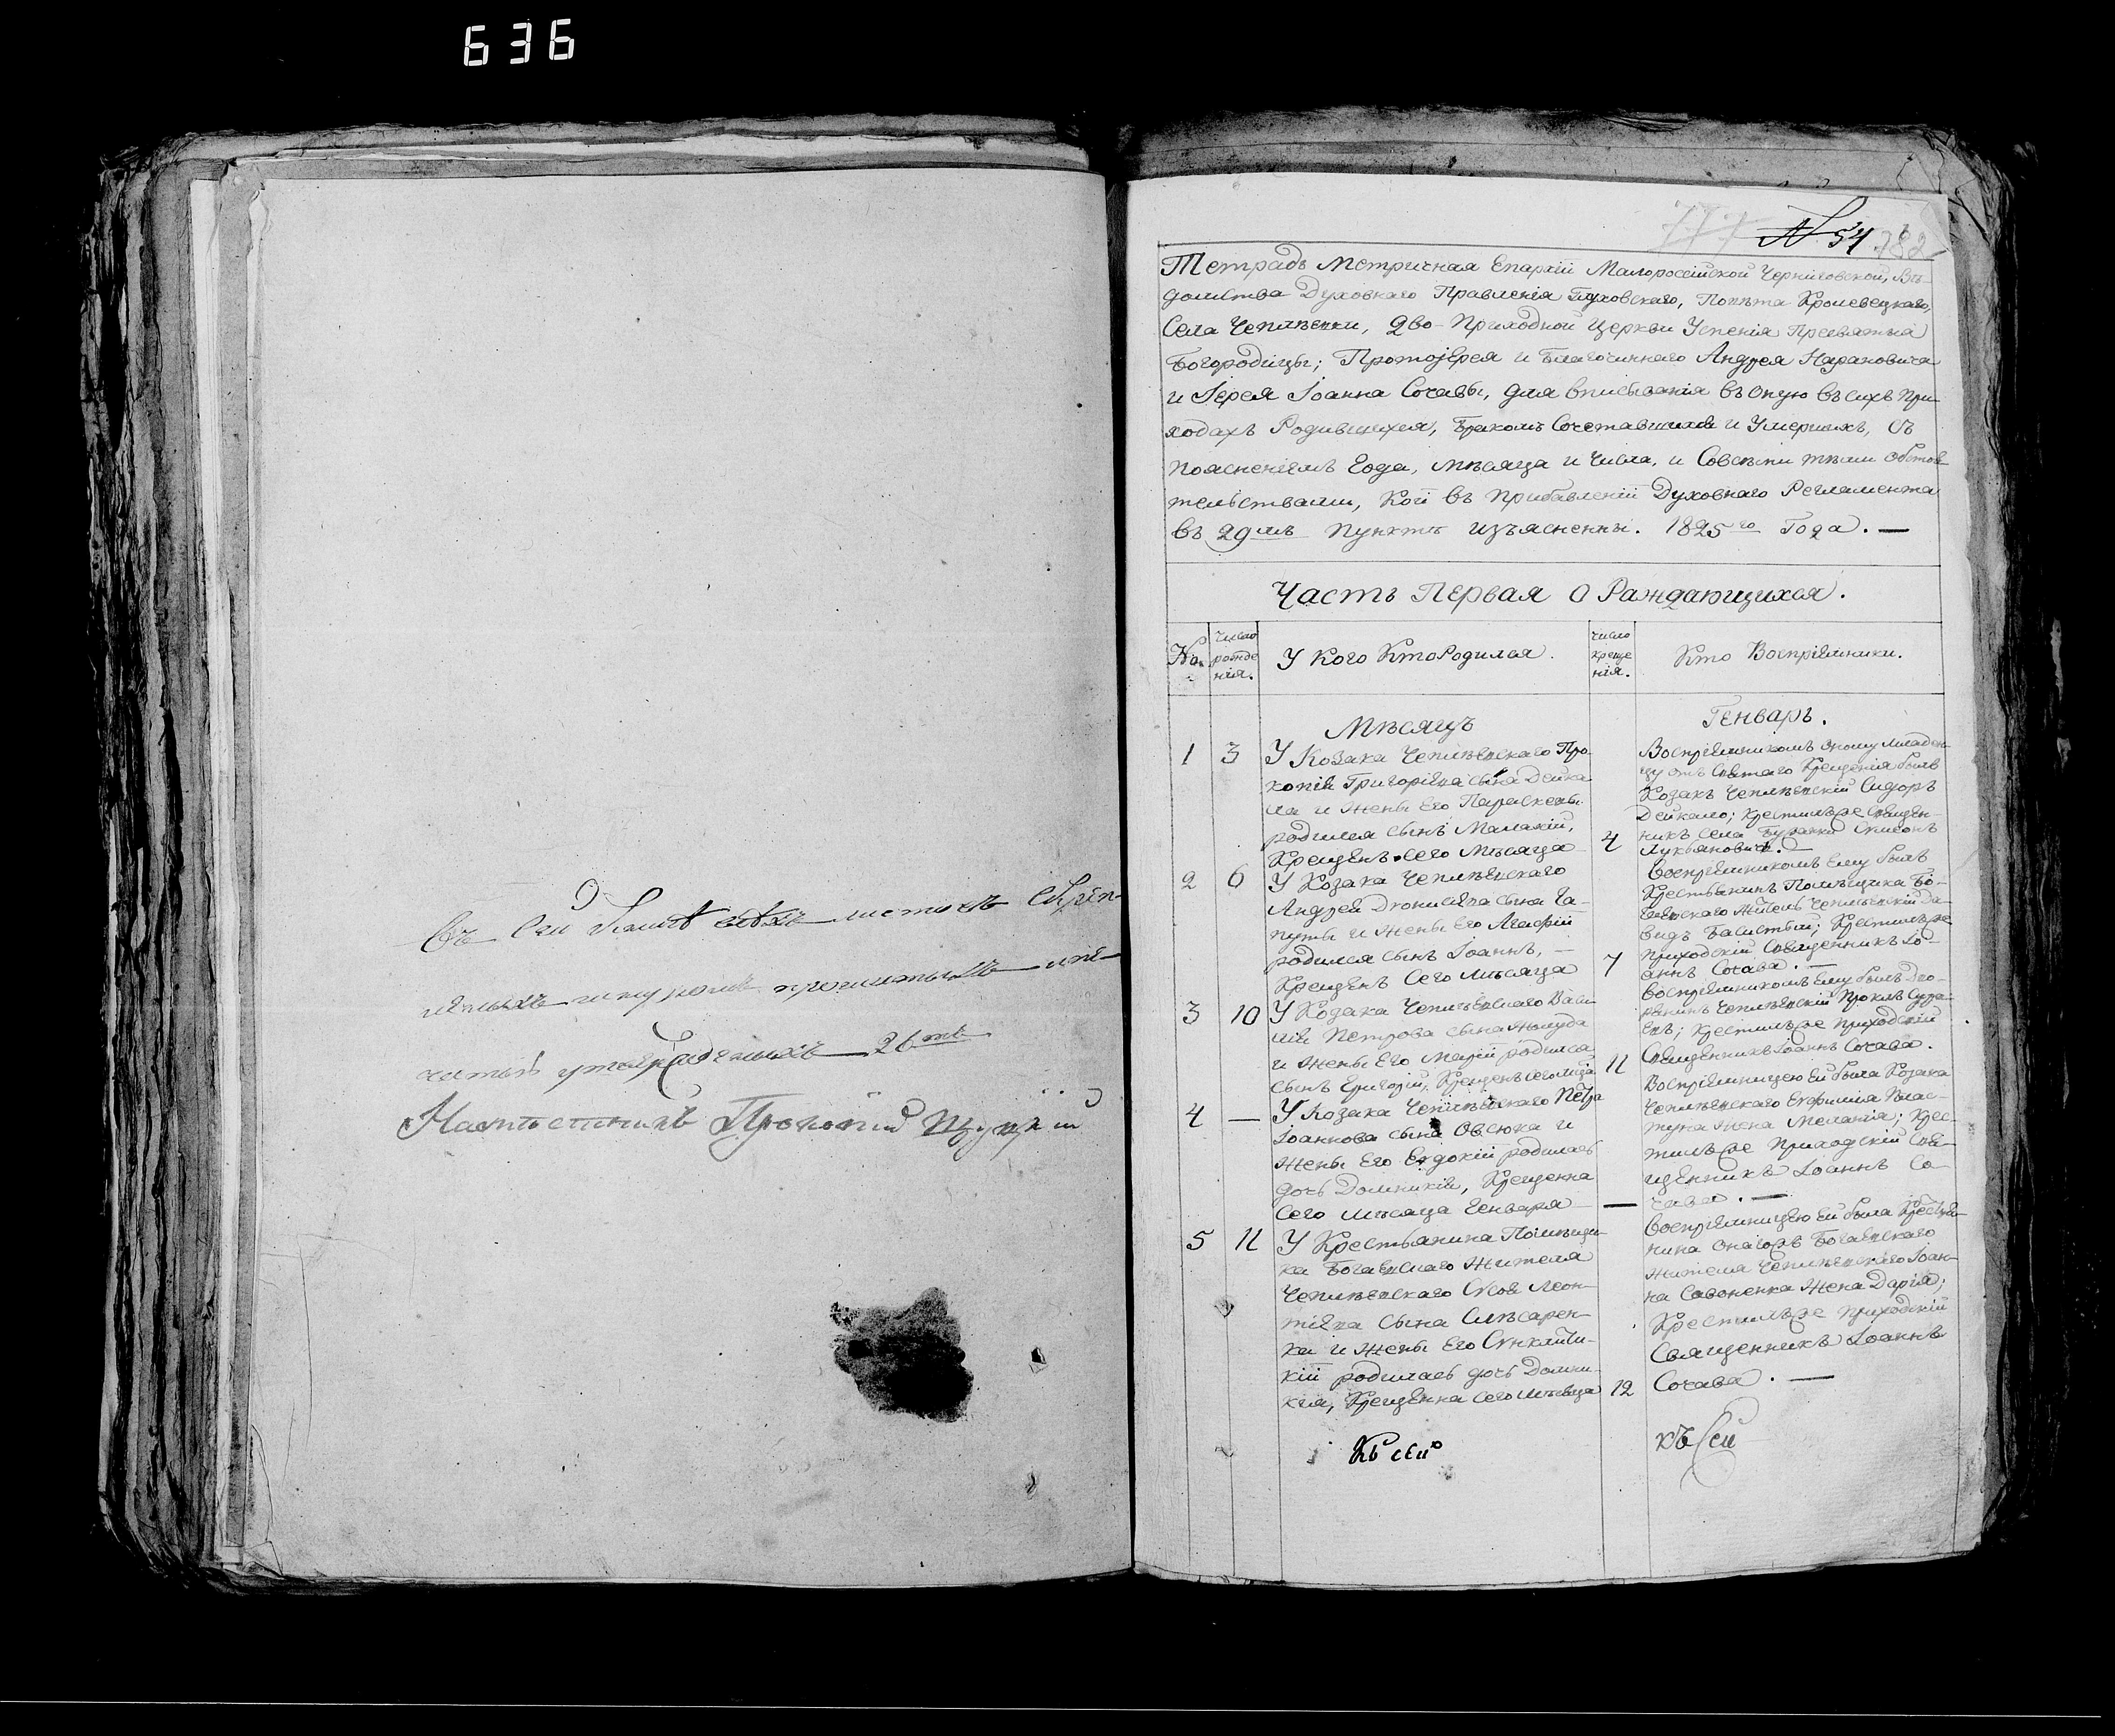 636
Въ сей Книгѣ всѣхъ листовъ скрѣп-
ленныхъ шнуромъ прошитыхъ и пе-
чатью утвержденныхъ 26ть
Намѣстникъ Прокопій
777 № 54 782
Тетрадь Метричная Епархіи Малороссійской Черниговской, Вѣ-
домства Духовнаго Правленія Глуховскаго, Повѣта Кролевецкаго,
Села Чеплѣевки, 2во-Приходной Церкви Успенія Пресвятыя
Богородицы; Протоіерея и Благочиннаго Андрея Нарановича
и Іерея Іоанна Сочавы, для вписыванія въ оную въ сихъ при-
ходахъ Родившихся, Бракомъ Сочетавшихся и Умершихъ, съ
поясненіемъ Года, мѣсяца и числа, и Совсѣми тѣми обстоя
тельствами, кои въ прибавленіи Духовнаго Регламента
въ 29мъ пунктѣ изъяснены. 1825го Года. —
Часть Первая О Раждающихся.
No. Число рожде нія. У кого Кто Родился. Число креще нія. Кто Воспріемники.
Мѣсяцъ Генварь.
1 3 У Козака Чеплѣевскаго Про-
копія Григоріева сына Дейка
ла и жены Его Параскевы
родился сынъ Малахій,
Крещенъ сего мѣсяца 4
Воспріемникомъ оному младен-
цу отъ Святаго Крещенія былъ
Козакъ Чеплѣевскій Сидоръ
Дейкало; крестилъ же Священ-
никъ села Симеонъ
Лукьяновичъ. —
2 6 У Козака Чеплѣевскаго
Андрея Діонисіева сына Га-
путы и жены Его Агафіи
родился сынъ Іоаннъ, —
Крещенъ Сего мѣсяца 7
Воспріемникомъ Ему былъ
Крестьянинъ Помѣщика Бо-
гаевскаго житель Чеплѣевскій Да-
видъ Басистый; Крестилъ же
приходскій Священникъ Іо-
аннъ Сочава. —
3 10 У Козака Чеплѣевскаго Васи-
лія Петрова сына
и жены Его Маріи родился
сынъ Григорій, Крещенъ сего мѣсяца 11
Воспріемникомъ Ему былъ Дво-
рянинъ Чеплѣевскій
Крестилъ же приходскій
Священникъ Іоаннъ Сочава.
4 — У Козака Чеплѣевскаго Петра
Іоаннова сына Овсюка и
жены Его Евдокіи родилась
дочь Домникія, Крещенна
Сего мѣсяца Генваря —
Воспріемницею Ей была Козака
Чеплѣевскаго Евфимія
жена Меланія; Крес-
тилъ же Приходскій Свя-
щенникъ Іоаннъ Со-
чава. —
5 11 У Крестьянина Помѣщи-
ка Богаевскаго жителя
Чеплѣевскаго Леон-
тіева сына Слѣсарен-
ка и жены Его Синклити-
кіи родилась дочь Домни-
кія, Крещенна сего мѣсяца 12
Воспріемницею Ей была Крестья-
нина онагожъ Богаевскаго
жителя Чеплѣевскаго Іоан-
на Савоненка жена Дарія;
Крестилъ же приходскій
Священникъ Іоаннъ
Сочава. —
Къ сей къ сей